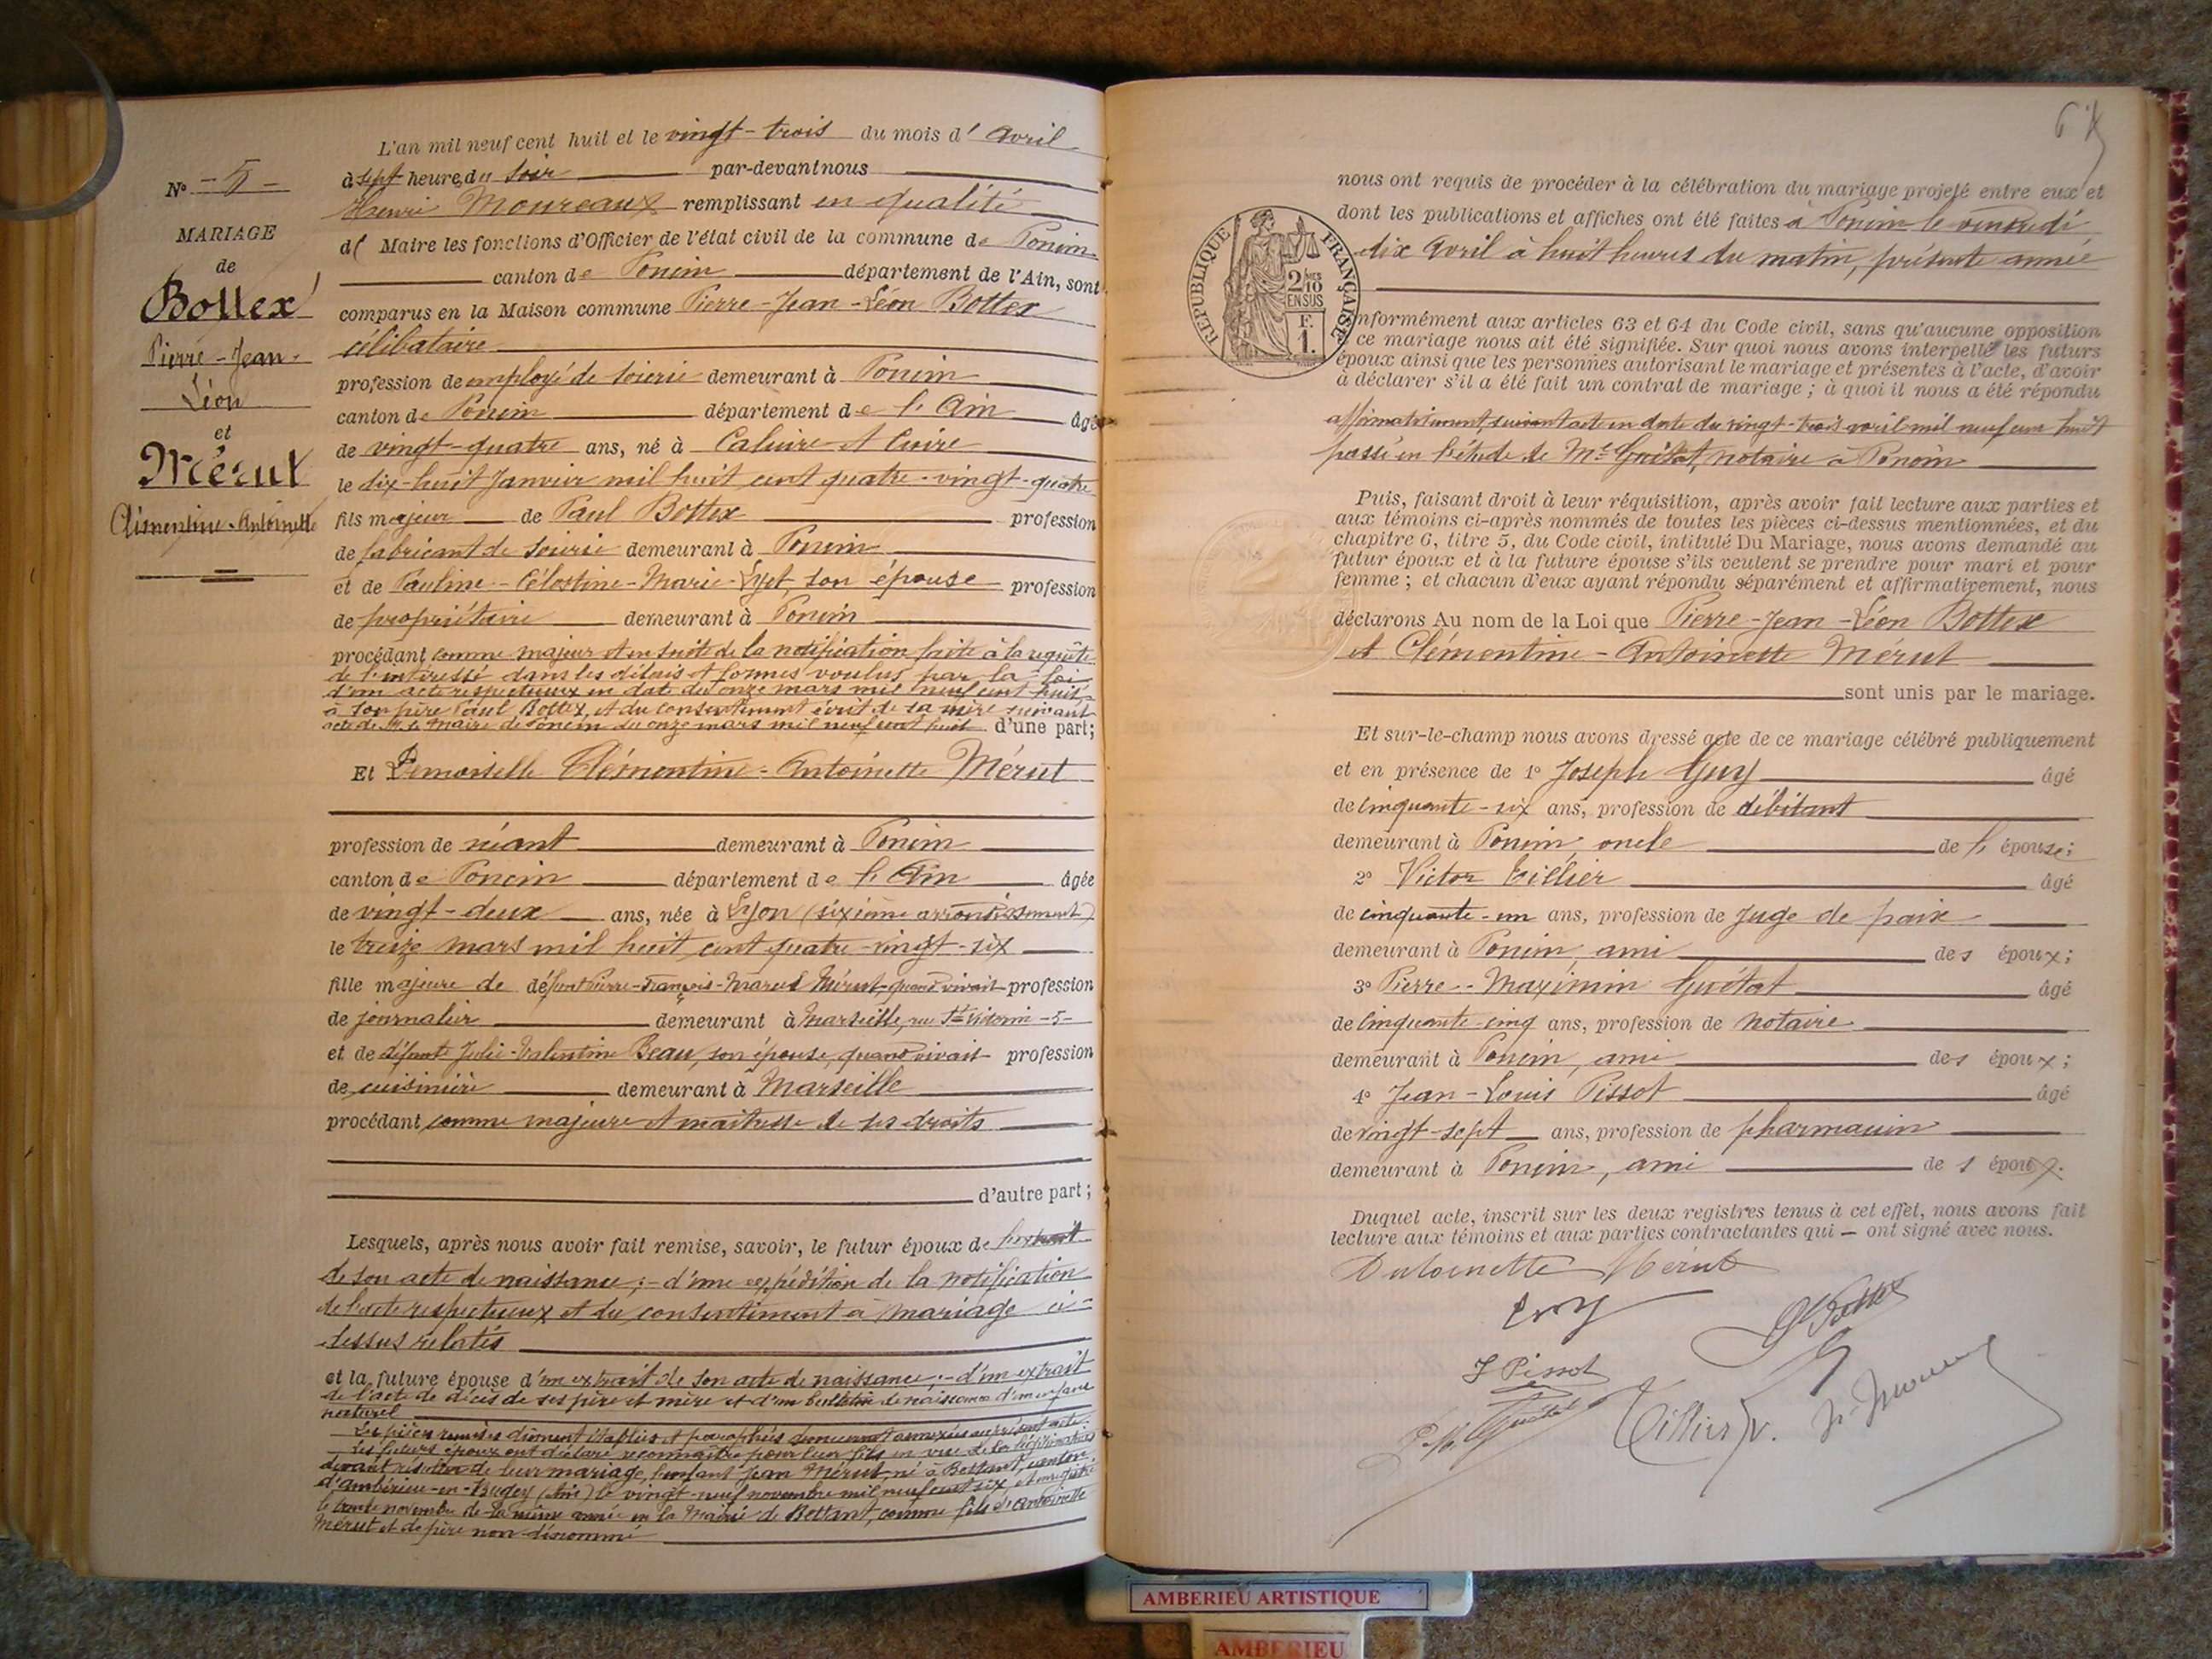 N° - 5 -
MARIAGE
de
Bottex
Pierre-Jean-
Léon
et
Mérut
Clémentine-Antoinette
L'an mil neuf cent huit et le vingt-trois du mois d'Avril
à sept heures du soir par-devant nous
Henri Moureaux remplissant en qualité
de Maire les fonctions d'Officier de l'état civil de la commune de Poncin
canton de Poncin département de l'Ain, sont
comparus en la Maison commune Pierre-Jean-Léon Bottex
célibataire
profession de employé de soierie demeurant à Poncin
canton de Poncin département de l'Ain âgé
de vingt-quatre ans, né à Caluire et Cuire
le dix-huit Janvier mil huit cent quatre-vingt-quatre
fils majeur de Paul Bottex profession
de fabricant de soierie demeurant à Poncin
et de Pauline-Célestine-Marie Lyet, son épouse profession
de propriétaire demeurant à Poncin
procédant comme majeur et ensuite de la notification faite à la requête
de l'intéressé dans les délais et formes voulus par la loi
d'un acte respectueux en date du onze mars mil neuf cent huit,
à son père Paul Bottex, et du consentement écrit de sa mère suivant
acte de M. le Maire de Poncin du onze mars mil neuf cent huit d'une part;
Et Demoiselle Clémentine-Antoinette Mérut
profession de néant demeurant à Poncin
canton de Poncin département de l'Ain âgée
de vingt-deux ans, née à Lyon (sixième arrondissement)
le treize mars mil huit cent quatre-vingt-six
fille majeure de défunt Pierre-François-Marcel Mérut, quand vivait profession
de journalier demeurant à Marseille, rue St -5-
et de défunte Julie-Valentine Beau, son épouse, quand vivait profession
de cuisinière demeurant à Marseille
procédant comme majeure et maîtresse de ses droits
d'autre part;
Lesquels, après nous avoir fait remise, savoir, le futur époux de l'extrait
de son acte de naissance; - d'une expédition de la notification
de l'acte respectueux et du consentement à mariage ci-
dessus relatés
et la future épouse d'un extrait de son acte de naissance; - d'un extrait
de l'acte de décès de ses père et mère et d'un bulletin de naissance d'un enfant
naturel
Les pièces remises dûment établies et paraphées demeurent annexées au présent acte.
Les futurs époux ont déclaré reconnaître pour leur fils en vue de la légitimation
devant résulter de leur mariage, l'enfant Jean Mérut, né à Bettant, canton
d'Ambérieu-en-Bugey (Ain) le vingt-neuf novembre mil neuf cent six et enregistré
le trente novembre de la même année en la Mairie de Bettant, comme fils d'Antoinette
Mérut et de père non dénommé
nous ont requis de procéder à la célébration du mariage projeté entre eux et
dont les publications et affiches ont été faites à Poncin le vendredi
dix Avril à huit heures du matin, présente année
RÉPUBLIQUE FRANÇAISE
2/10
EN SUS
F.
1.
nformément aux articles 63 et 64 du Code civil, sans qu'aucune opposition
ce mariage nous ait été signifiée. Sur quoi nous avons interpellé les futurs
époux ainsi que les personnes autorisant le mariage et présentes à l'acte, d'avoir
à déclarer s'il a été fait un contrat de mariage; à quoi il nous a été répondu
affirmativement, suivant acte en date du vingt-trois avril mil neuf cent huit
passé en l'étude de Me Guétat, notaire à Poncin
Puis, faisant droit à leur réquisition, après avoir fait lecture aux parties et
aux témoins ci-après nommés de toutes les pièces ci-dessus mentionnées, et du
chapitre 6, titre 5, du Code civil, intitulé Du Mariage, nous avons demandé au
futur époux et à la future épouse s'ils veulent se prendre pour mari et pour
femme; et chacun d'eux ayant répondu séparément et affirmativement, nous
déclarons Au nom de la Loi que Pierre-Jean-Léon Bottex
et Clémentine-Antoinette Mérut
sont unis par le mariage.
Et sur-le-champ nous avons dressé acte de ce mariage célébré publiquement
et en présence de 1° Joseph Guy âgé
de cinquante-six ans, profession de débitant
demeurant à Poncin oncle de l'épouse;
2° Victor Tillier âgé
de cinquante-un ans, profession de Juge de paix
demeurant à Poncin, ami des époux;
3° Pierre-Maximin Guétat âgé
de cinquante-cinq ans, profession de notaire
demeurant à Poncin, ami des époux;
4° Jean-Louis Pissot âgé
de vingt-sept ans, profession de pharmacien
demeurant à Poncin, ami des époux.
Duquel acte, inscrit sur les deux registres tenus à cet effet, nous avons fait
lecture aux témoins et aux parties contractantes qui — ont signé avec nous.
Antoinette Mérut
Guy
Bottex
J Pissot
Guétat
Tillier V.
AMBERIEU ARTISTIQUE
AMBERIEU